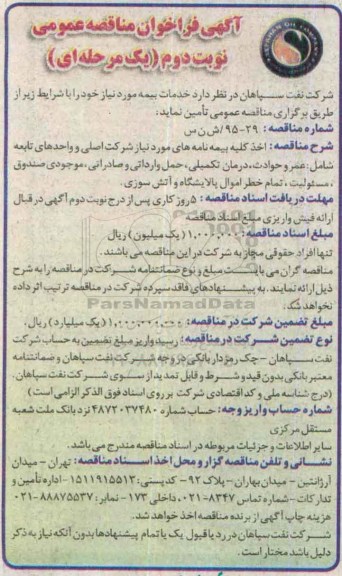 آگهی فراخوان مناقصه عمومی
نوبت دوم (یک مرحله ای)
شرکت نفت سپاهان در نظر دارد خدمات بیمه مورد نیاز خود را با شرایط زیر از
طریق برگزاری مناقصه عمومی تأمین نماید:
شماره مناقصه: ۲۹-۹۵/ش ن س
شرح مناقصه: اخذ کلیه بیمه نامه های مورد نیاز شرکت اصلی و واحدهای تابعه
شامل: عمر و حوادث، درمان تکمیلی، حمل وارداتی و صادراتی، موجودی صندوق
، مسئولیت، تمام خطر اموال پالایشگاه و آتش سوزی.
مهلت دریافت اسناد مناقصه: ۵ روز کاری پس از درج نوبت دوم آگهی در قبال
ارائه فیش واریزی مبلغ اسناد مناقصه
مبلغ اسناد مناقصه: ۱,۰۰۰,۰۰۰ (یک میلیون) ریال
تنها افراد حقوقی مجاز به شرکت در این مناقصه می باشند.
مناقصه گران می بایست مبلغ و نوع ضمانتنامه شرکت در مناقصه را به شرح
ذیل ارائه نمایند. به پیشنهادهای فاقد سپرده شرکت در مناقصه ترتیب اثر داده
نخواهد شد.
مبلغ تضمین شرکت در مناقصه: ۱,۰۰۰,۰۰۰,۰۰۰ (یک میلیارد) ریال.
نوع تضمین شرکت در مناقصه: رسید واریز مبلغ تضمین به حساب شرکت
نفت سپاهان - چک رمزدار بانکی در وجه شرکت نفت سپاهان و ضمانتنامه
معتبر بانکی بدون قید و شرط و قابل تمدید از سوی شرکت نفت سپاهان.
(درج شناسه ملی و کد اقتصادی شرکت بر روی اسناد فوق الذکر الزامی است)
شماره حساب واریز وجه: حساب شماره ۴۸۷۲۰۳۷۴۸۰ نزد بانک ملت شعبه
مستقل مرکزی
سایر اطلاعات و جزئیات مربوطه در اسناد مناقصه مندرج می باشد.
نشانی و تلفن مناقصه گزار و محل اخذ اسناد مناقصه: تهران - میدان
آرژانتین - میدان بهاران - پلاک ۹۲ - کدپستی: ۱۵۱۱۹۱۵۵۱۳ - اداره تأمین و
تدارکات - شماره تماس ۸۳۴۷-۰۲۱ داخلی ۱۷۳ - نمابر: ۸۸۸۷۵۵۳۷-۰۲۱
هزینه چاپ آگهی از برنده مناقصه اخذ خواهد شد.
شرکت نفت سپاهان در رد یا قبول یک یا تمام پیشنهادها بدون آنکه نیاز به ذکر
دلیل باشد مختار است.
ParsNamadData